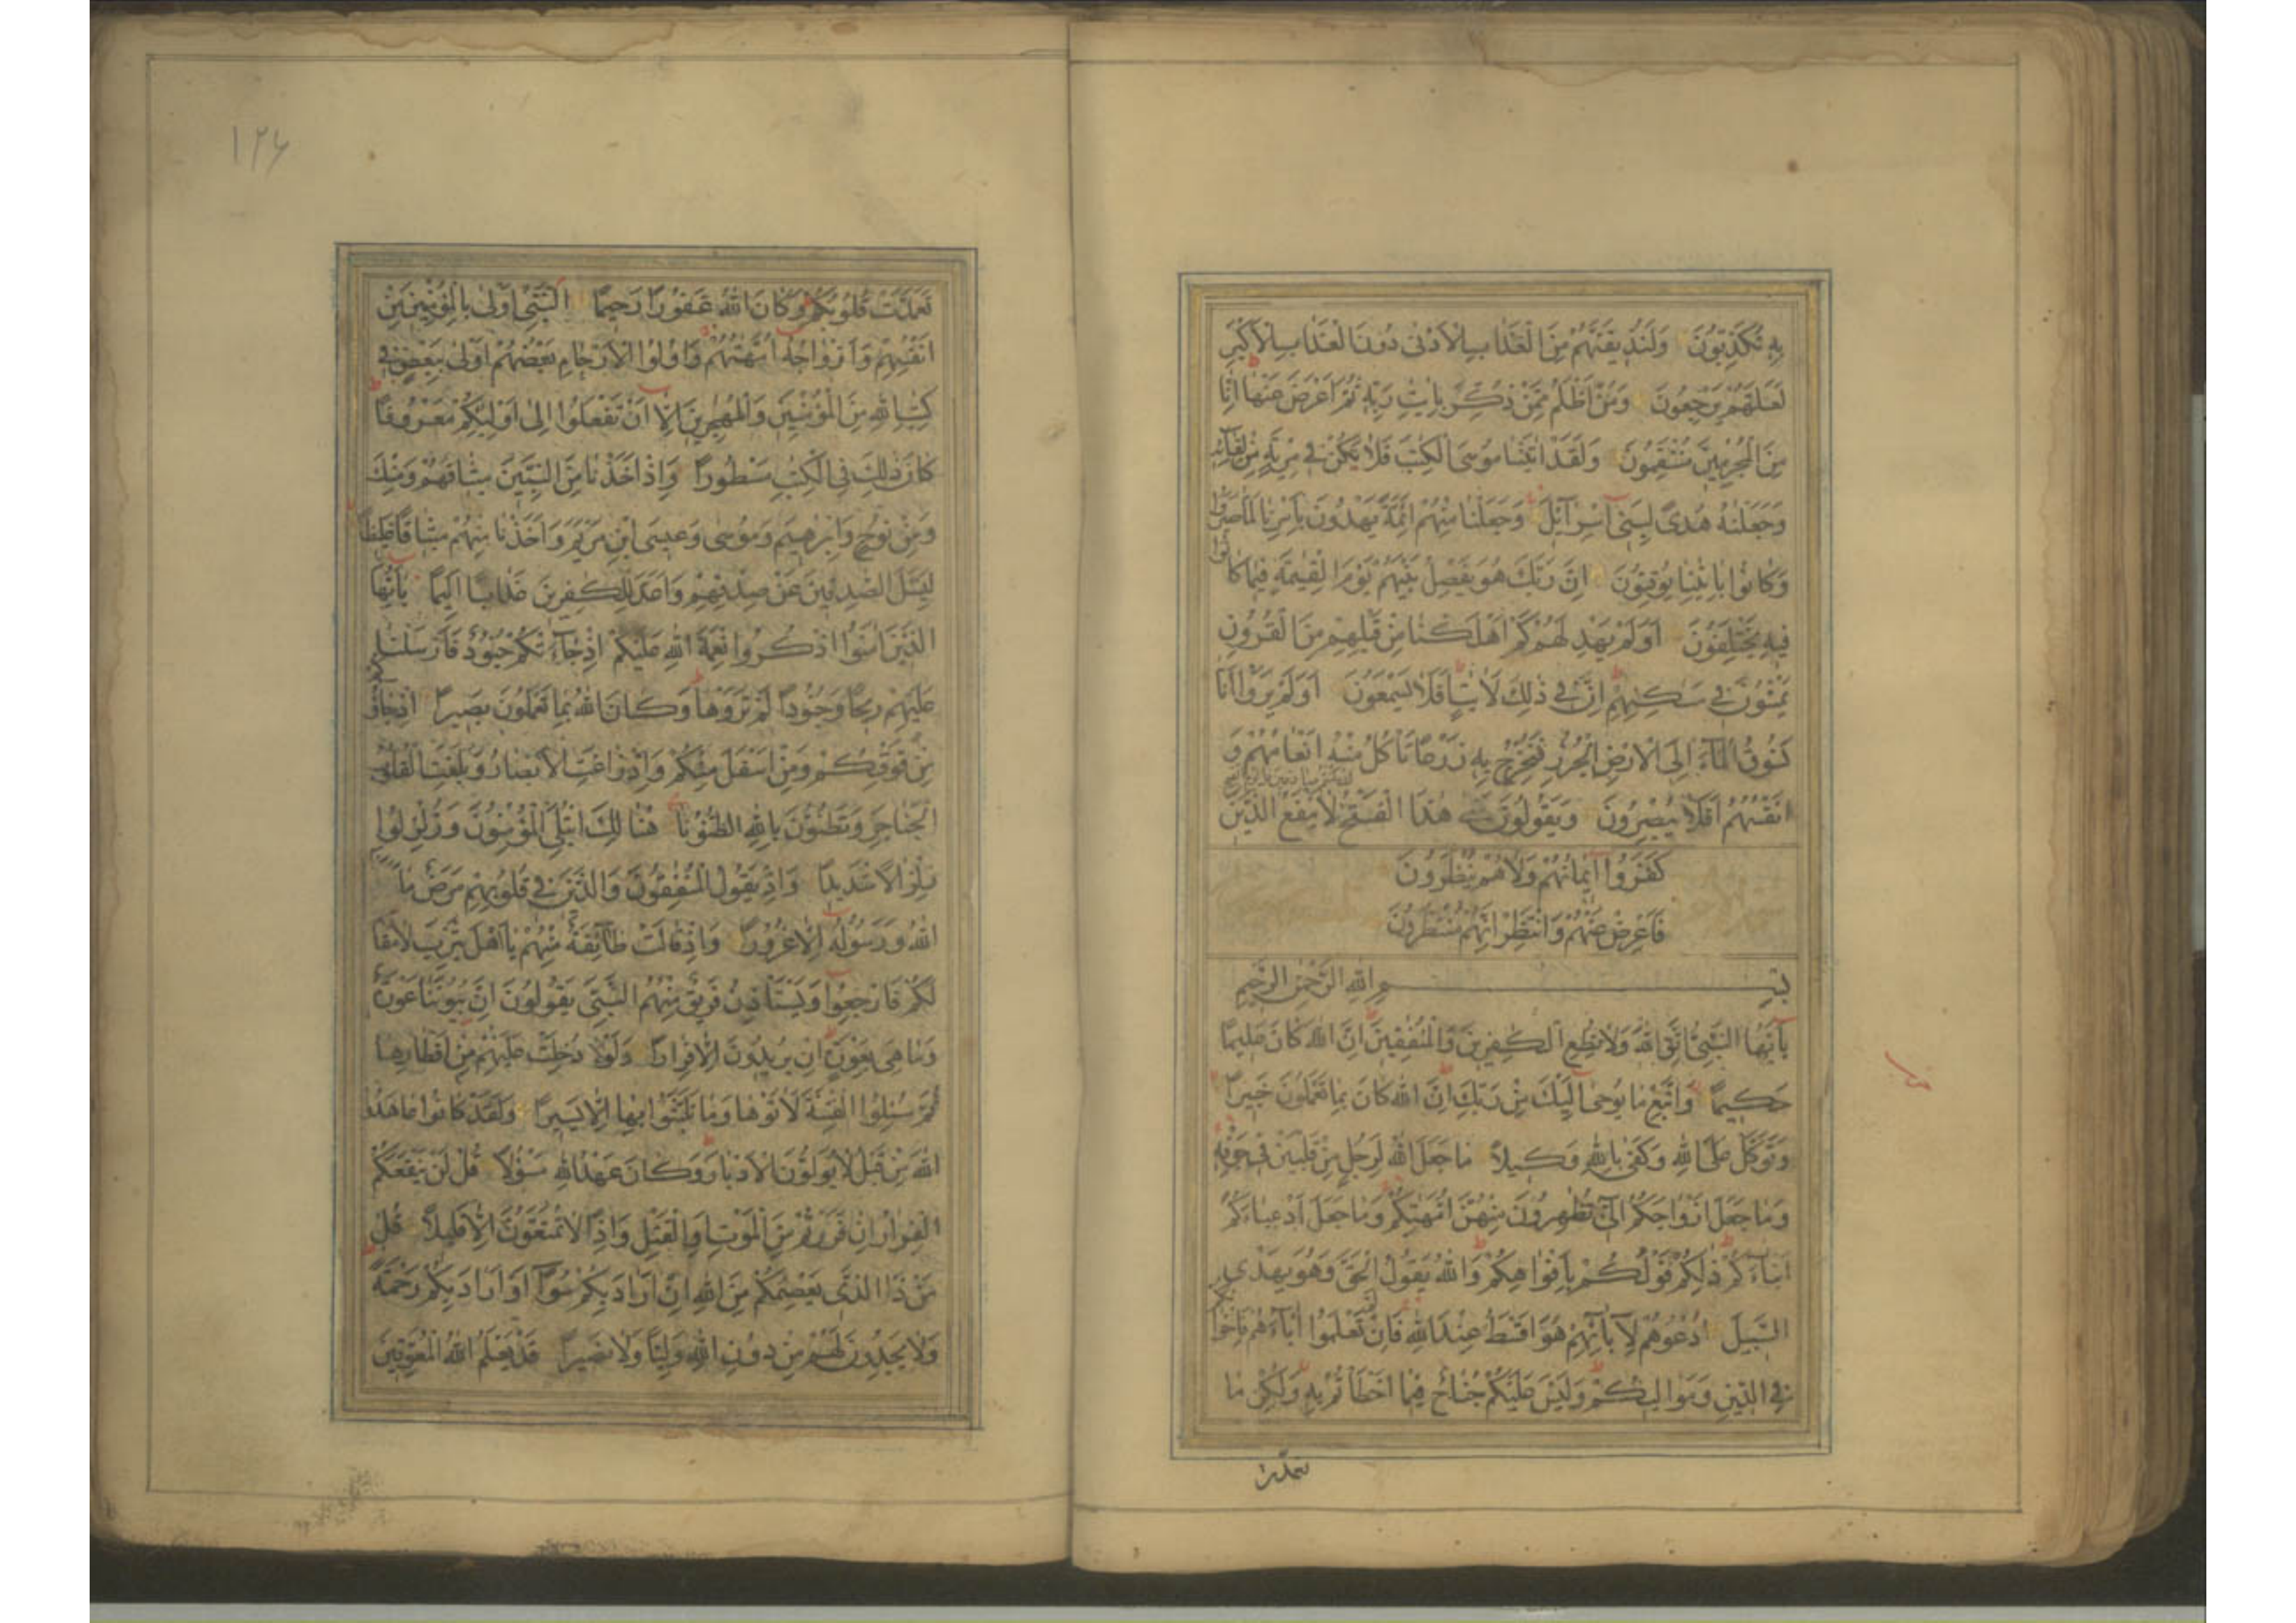 بِهِ تُكَذِّبُونَ وَلَنُذِيقَنَّهُمْ مِنَ الْعَذَابِ الْأَدْنىٰ دُونَ الْعَذَابِ الْأَكْبَرِ
لَعَلَّهُمْ يَرْجِعُونَ وَمَنْ أَظْلَمُ مِمَّنْ ذُكِّرَ بِاٰيٰتِ رَبِّهِ ثُمَّ أَعْرَضَ عَنْهَا إِنَّا
مِنَ الْمُجْرِمِينَ مُنْتَقِمُونَ وَلَقَدْ اٰتَيْنَا مُوسَى الْكِتٰبَ فَلَا تَكُنْ فِي مِرْيَةٍ مِنْ لِقَائِهِ
وَجَعَلْنٰهُ هُدًى لِبَنِي إِسْرَآئِلَ وَجَعَلْنَا مِنْهُمْ أَئِمَّةً يَهْدُونَ بِأَمْرِنَا لَمَّا صَبَرُوا
وَكَانُوا بِاٰيٰتِنَا يُوقِنُونَ إِنَّ رَبَّكَ هُوَ يَفْصِلُ بَيْنَهُمْ يَوْمَ الْقِيٰمَةِ فِيمَا كَانُوا
فِيهِ يَخْتَلِفُونَ أَوَلَمْ يَهْدِ لَهُمْ كَمْ أَهْلَكْنَا مِنْ قَبْلِهِمْ مِنَ الْقُرُونِ
يَمْشُونَ فِي مَسٰكِنِهِمْ إِنَّ فِي ذٰلِكَ لَاٰيٰتٍ أَفَلَا يَسْمَعُونَ أَوَلَمْ يَرَوْا أَنَّا
نَسُوقُ الْمَآءَ إِلَى الْأَرْضِ الْجُرُزِ فَنُخْرِجُ بِهِ زَرْعًا تَأْكُلُ مِنْهُ أَنْعَامُهُمْ وَ
أَنْفُسُهُمْ أَفَلَا يُبْصِرُونَ وَيَقُولُونَ مَتىٰ هٰذَا الْفَتْحُ لَا يَنْفَعُ الَّذِينَ
كَفَرُوا إِيمَانُهُمْ وَلَا هُمْ يُنْظَرُونَ
فَأَعْرِضْ عَنْهُمْ وَانْتَظِرْ إِنَّهُمْ مُنْتَظِرُونَ
بِسْمِ اللهِ الرَّحْمٰنِ الرَّحِيمِ
يٰأَيُّهَا النَّبِيُّ اتَّقِ اللهَ وَلَا تُطِعِ الْكٰفِرِينَ وَالْمُنٰفِقِينَ إِنَّ اللهَ كَانَ عَلِيمًا
حَكِيمًا وَاتَّبِعْ مَا يُوحىٰ إِلَيْكَ مِنْ رَبِّكَ إِنَّ اللهَ كَانَ بِمَا تَعْمَلُونَ خَبِيرًا
وَتَوَكَّلْ عَلَى اللهِ وَكَفىٰ بِاللهِ وَكِيلًا مَا جَعَلَ اللهُ لِرَجُلٍ مِنْ قَلْبَيْنِ فِي جَوْفِهِ
وَمَا جَعَلَ أَزْوَاجَكُمُ الّٰٓئِي تُظٰهِرُونَ مِنْهُنَّ أُمَّهٰتِكُمْ وَمَا جَعَلَ أَدْعِيَاءَكُمْ
أَبْنَاءَكُمْ ذٰلِكُمْ قَوْلُكُمْ بِأَفْوَاهِكُمْ وَاللهُ يَقُولُ الْحَقَّ وَهُوَ يَهْدِي
السَّبِيلَ أُدْعُوهُمْ لِآبَآئِهِمْ هُوَ أَقْسَطُ عِنْدَ اللهِ فَإِنْ لَمْ تَعْلَمُوا اٰبَآءَهُمْ فَإِخْوَانُكُمْ
فِي الدِّينِ وَمَوَالِيكُمْ وَلَيْسَ عَلَيْكُمْ جُنَاحٌ فِيمَا أَخْطَأْتُمْ بِهِ وَلٰكِنْ مَا
تعمّدت
١٢٦
تَعَمَّدَتْ قُلُوبُكُمْ وَكَانَ اللهُ غَفُورًا رَحِيمًا النَّبِيُّ أَوْلىٰ بِالْمُؤْمِنِينَ مِنْ
أَنْفُسِهِمْ وَأَزْوَاجُهُ أُمَّهٰتُهُمْ وَأُولُوا الْأَرْحَامِ بَعْضُهُمْ أَوْلىٰ بِبَعْضٍ فِي
كِتٰبِ اللهِ مِنَ الْمُؤْمِنِينَ وَالْمُهٰجِرِينَ إِلَّا أَنْ تَفْعَلُوا إِلىٰ أَوْلِيٰئِكُمْ مَعْرُوفًا
كَانَ ذٰلِكَ فِي الْكِتٰبِ مَسْطُورًا وَإِذْ أَخَذْنَا مِنَ النَّبِيِّينَ مِيثَاقَهُمْ وَمِنْكَ
وَمِنْ نُوحٍ وَإِبْرٰهِيمَ وَمُوسىٰ وَعِيسَى ابْنِ مَرْيَمَ وَأَخَذْنَا مِنْهُمْ مِيثَاقًا غَلِيظًا
لِيَسْئَلَ الصّٰدِقِينَ عَنْ صِدْقِهِمْ وَأَعَدَّ لِلْكٰفِرِينَ عَذَابًا أَلِيمًا يٰأَيُّهَا
الَّذِينَ اٰمَنُوا اذْكُرُوا نِعْمَةَ اللهِ عَلَيْكُمْ إِذْ جَآءَتْكُمْ جُنُودٌ فَأَرْسَلْنَا
عَلَيْهِمْ رِيحًا وَجُنُودًا لَمْ تَرَوْهَا وَكَانَ اللهُ بِمَا تَعْمَلُونَ بَصِيرًا إِذْ جَاؤُكُمْ
مِنْ فَوْقِكُمْ وَمِنْ أَسْفَلَ مِنْكُمْ وَإِذْ زَاغَتِ الْأَبْصَارُ وَبَلَغَتِ الْقُلُوبُ
الْحَنَاجِرَ وَتَظُنُّونَ بِاللهِ الظُّنُونَا هُنَالِكَ ابْتُلِيَ الْمُؤْمِنُونَ وَزُلْزِلُوا
زِلْزَالًا شَدِيدًا وَإِذْ يَقُولُ الْمُنٰفِقُونَ وَالَّذِينَ فِي قُلُوبِهِمْ مَرَضٌ مَا
اللهُ وَرَسُولُهُ إِلَّا غُرُورًا وَإِذْ قَالَتْ طَآئِفَةٌ مِنْهُمْ يَا أَهْلَ يَثْرِبَ لَا مُقَامَ
لَكُمْ فَارْجِعُوا وَيَسْتَأْذِنُ فَرِيقٌ مِنْهُمُ النَّبِيَّ يَقُولُونَ إِنَّ بُيُوتَنَا عَوْرَةٌ
وَمَا هِيَ بِعَوْرَةٍ إِنْ يُرِيدُونَ إِلَّا فِرَارًا وَلَوْ دُخِلَتْ عَلَيْهِمْ مِنْ أَقْطَارِهَا
ثُمَّ سُئِلُوا الْفِتْنَةَ لَاٰتَوْهَا وَمَا تَلَبَّثُوا بِهَا إِلَّا يَسِيرًا وَلَقَدْ كَانُوا عَاهَدُوا
اللهَ مِنْ قَبْلُ لَا يُوَلُّونَ الْأَدْبَارَ وَكَانَ عَهْدُ اللهِ مَسْؤُلًا قُلْ لَنْ يَنْفَعَكُمُ
الْفِرَارُ إِنْ فَرَرْتُمْ مِنَ الْمَوْتِ أَوِ الْقَتْلِ وَإِذًا لَا تُمَتَّعُونَ إِلَّا قَلِيلًا قُلْ
مَنْ ذَا الَّذِي يَعْصِمُكُمْ مِنَ اللهِ إِنْ أَرَادَ بِكُمْ سُوٓءًا أَوْ أَرَادَ بِكُمْ رَحْمَةً
وَلَا يَجِدُونَ لَهُمْ مِنْ دُونِ اللهِ وَلِيًّا وَلَا نَصِيرًا قَدْ يَعْلَمُ اللهُ الْمُعَوِّقِينَ